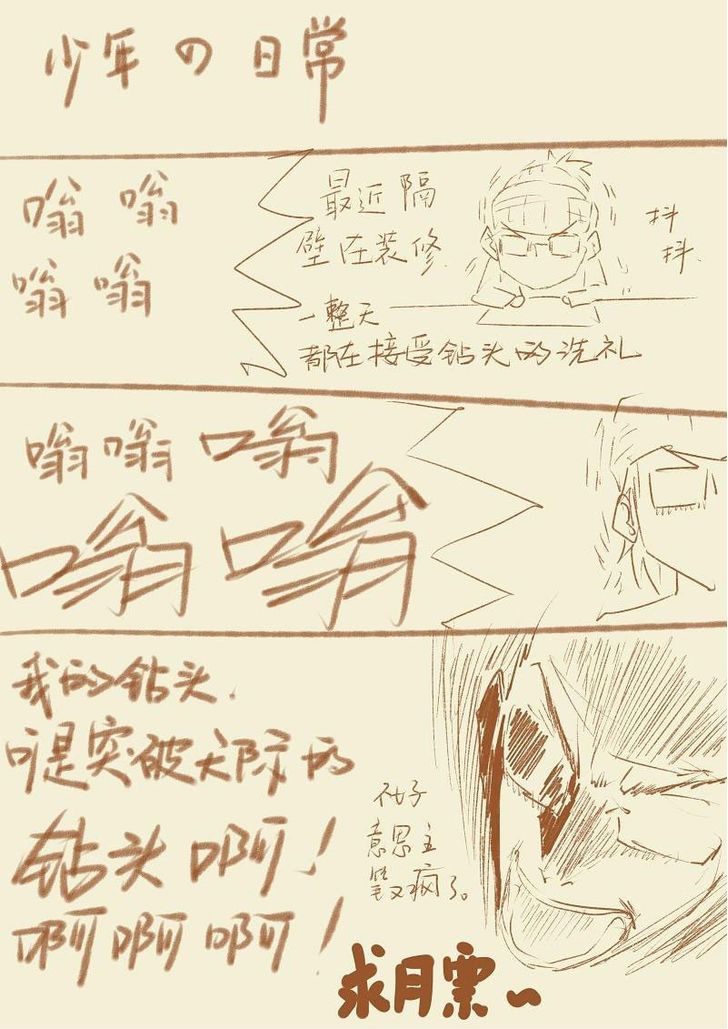 少年の日常
嗡 嗡
嗡 嗡
最近隔
壁在装修
一整天
都在接受钻头的洗礼
抖
抖
嗡嗡嗡
嗡嗡
我的钻头
可是突破天际的
钻头啊！
啊啊啊！
不好
意思主
笔又疯了。
求月票~